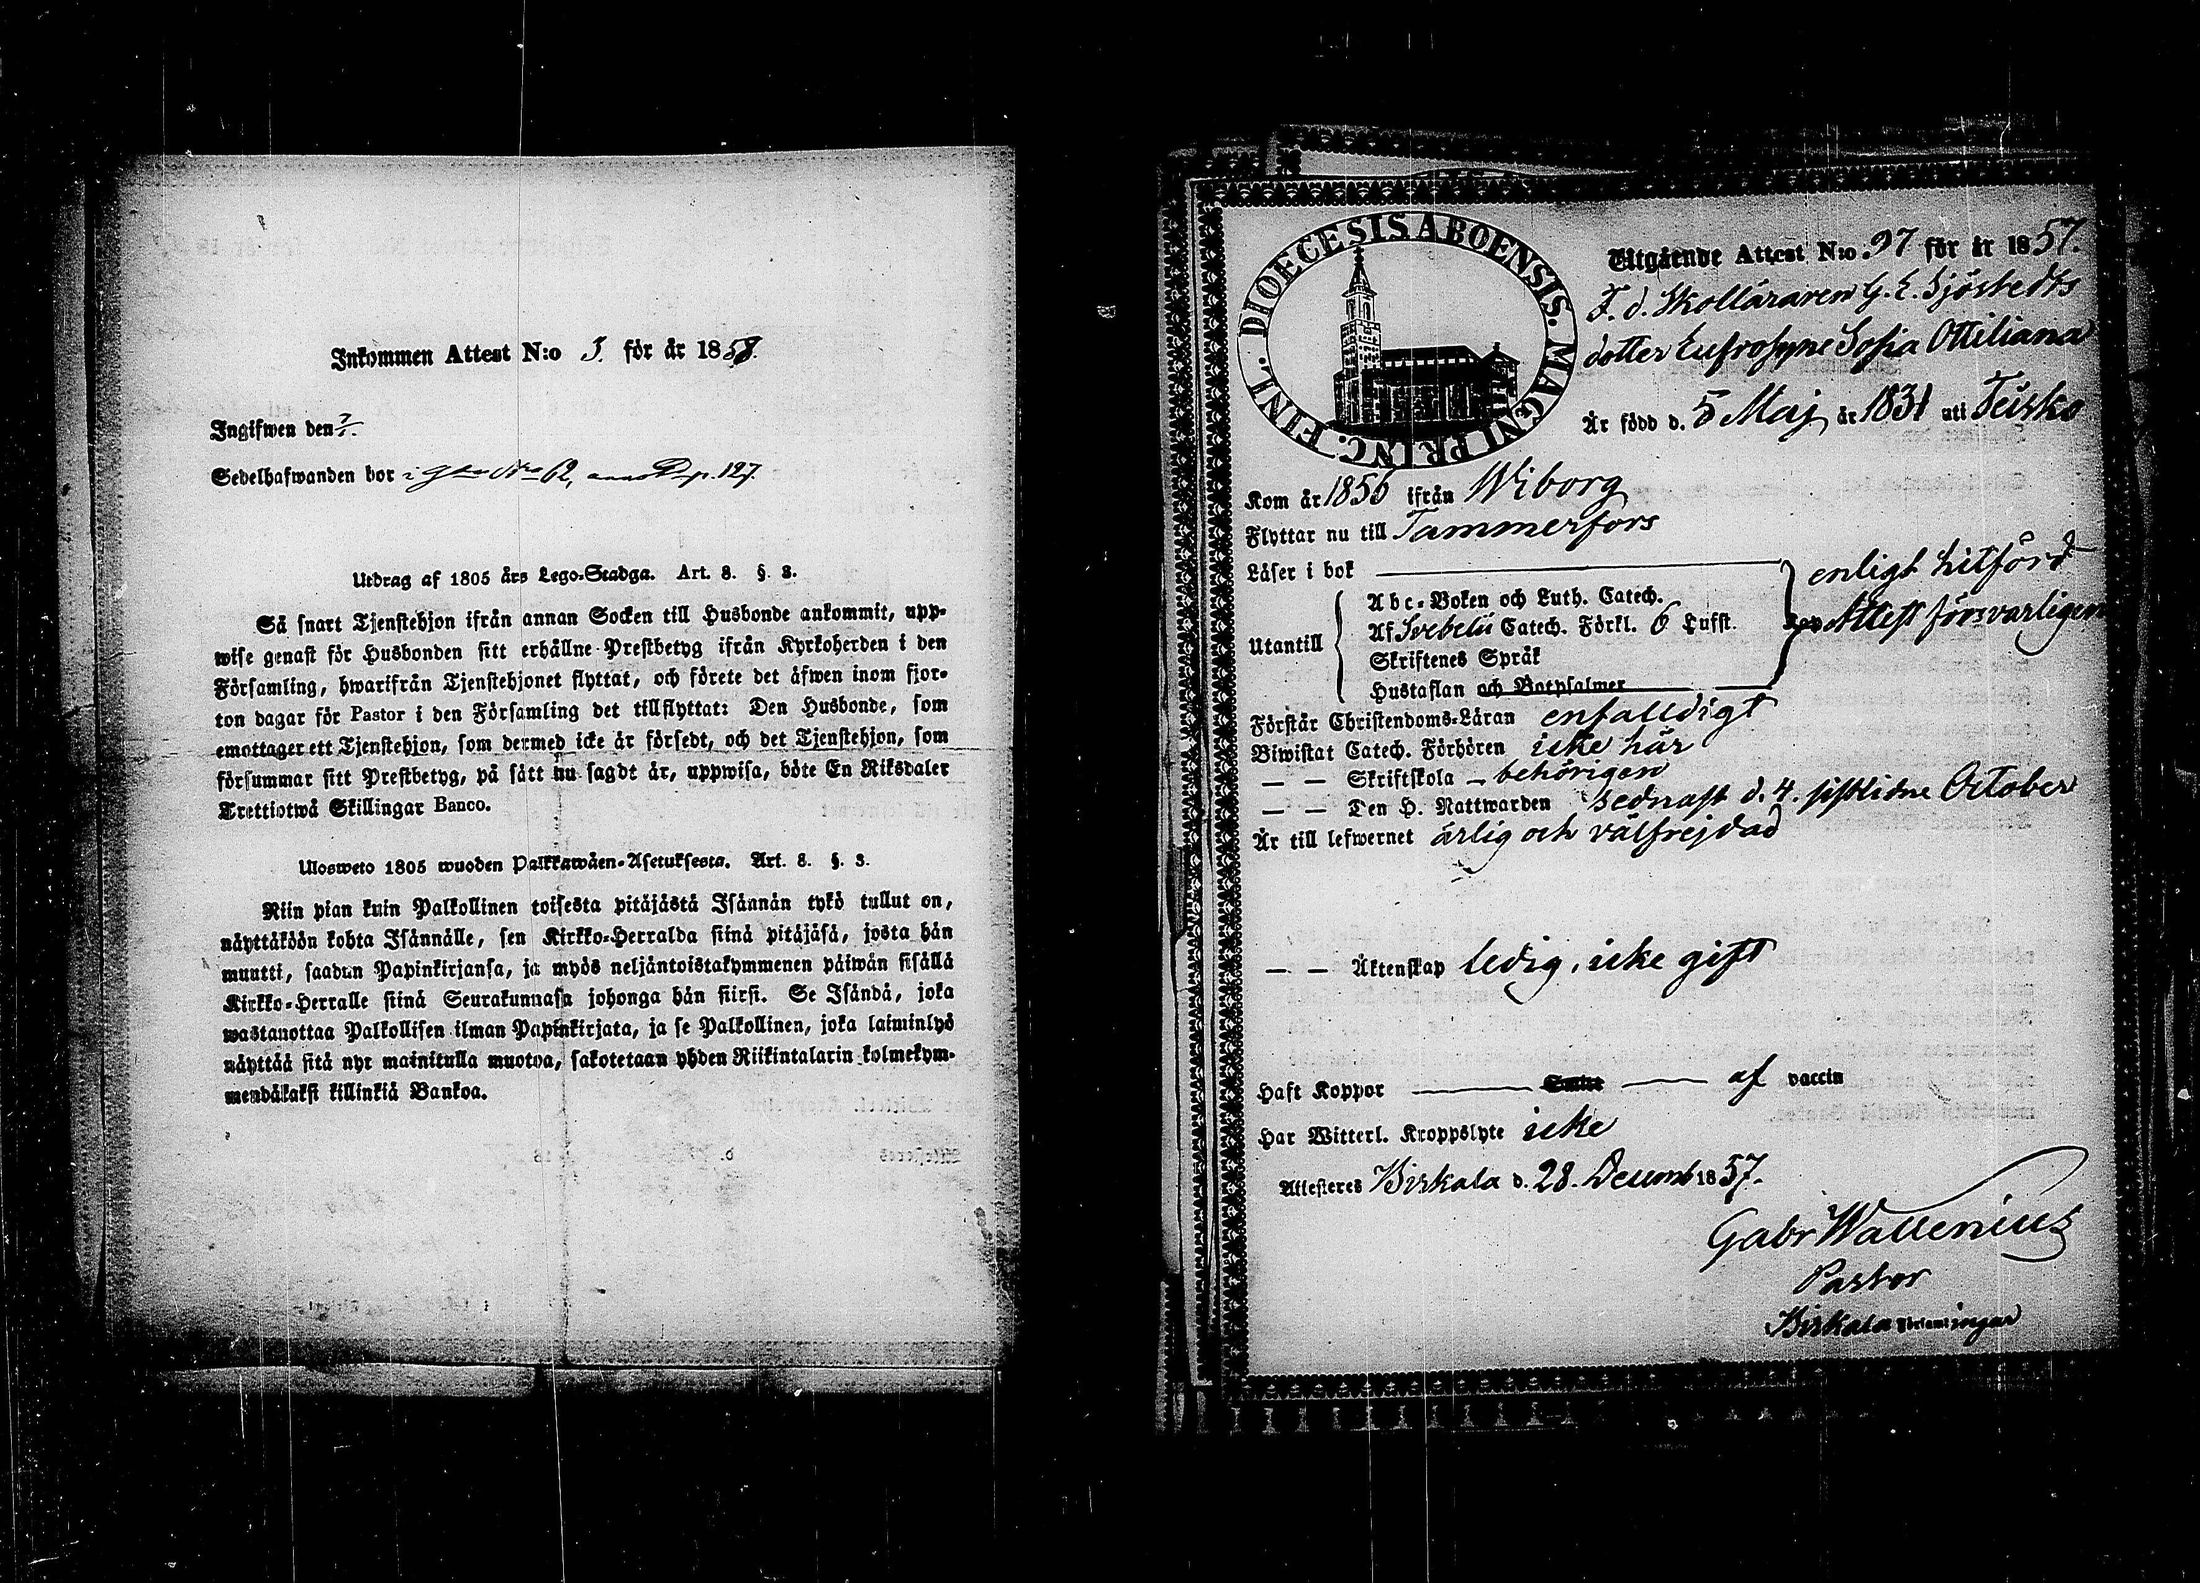 Inkommen Attest N:o 3. för år 1858.
Ingifwen den
Sedelhafwanden bor i No 62, p. 127.
Utdrag af 1805 års Lego-Stadga. Art. 8. §. 3.
Så snart Tjenstehjon ifrån annan Socken till Husbonde ankommit, upp-
wise genast för Husbonden sitt erhållne Prestbetyg ifrån Kyrkoherden i den
Församling, hwarifrån Tjenstehjonet flyttat, och förete det äfwen inom fjor-
ton dagar för Pastor i den Församling det tillflyttat: Den Husbonde, som
emottager ett Tjenstehjon, som dermed icke är försedt, och det Tjenstehjon, som
försummar sitt Prestbetyg, på sätt nu sagdt är, uppwisa, böte En Riksdaler
Trettiotwå Skillingar Banco.
Ulosweto 1805 wuoden Palkkawäen-Asetuksesta. Art. 8. §. 3.
Niin pian kuin Palkollinen toisesta pitäjästä Isännän tykö tullut on,
näyttäköön kohta Isännälle, sen Kirkko-Herralda siinä pitäjäsä, josta hän
muutti, saadun Papinkirjansa, ja myös neljäntoistakymmenen päiwän sisällä
Kirkko-Herralle siinä Seurakunnasa johonga hän siirsi. Se Isändä, joka
wastanottaa Palkollisen ilman Papinkirjata, ja se Palkollinen, joka laiminlyö
näyttää sitä nyt mainitulla muotoa, sakotetaan yhden Riikintalarin kolmekym-
mendäkaksi killinkiä Bankoa.
DIOECESIS ABOENSIS. MAGNI PRINC. FINL.
Utgående Attest N:o 97 för år 1857.
F. d. Skolläraren G. E. Sjöstedts
dotter Eufrosyne Sofia Ottiliana
Är född d. 5 Maj år 1831 uti Teisko
Kom år 1856 ifrån Wiborg
Flyttar nu till Tammerfors
Läser i bok
enligt hitförd
Utantill
Abc-Boken och Luth. Catech.
Af Svebelii Catech. Förkl. 6 Lufst.
Attest försvarligen
Skriftenes Språk
Hustaflan och Botpsalmer
Förstår Christendoms-Läran enfalldigt
Biwistat Catech. Förhören icke här
— — Skriftskola — behörigen
— — Den H. Nattwarden sednast d. 4. sistlidne October
Är till lefwernet ärlig och välfrejdad
— — Äktenskap ledig, icke gift
Haft Koppor af vaccin
Har Witterl. Kroppslyte icke
Attesteres Birkala d. 28. Decemb 1857.
Gabr Wallenius
Pastor
Birkala Församlingar